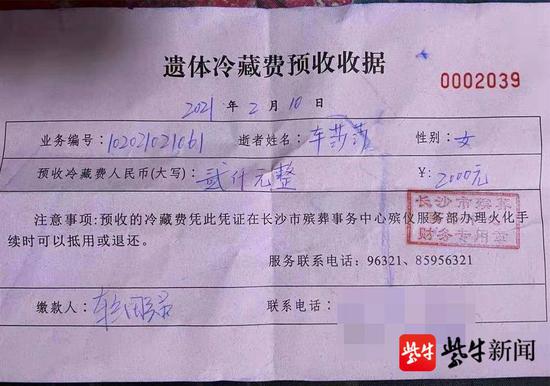 遗体冷藏费预收收据
0002039
2021 年 2 月 10 日
业务编号: 102021021061 逝者姓名: 车莎莎 性别: 女
预收冷藏费人民币(大写): 贰仟元整 ¥: 2000元
注意事项:预收的冷藏费凭此凭证在长沙市殡葬事务中心殡仪服务部办理火化手
续时可以抵用或退还。
长沙市殡葬
财务专用章
服务联系电话: 96321、85956321
缴款人: 联系电话:
紫牛 紫牛新闻